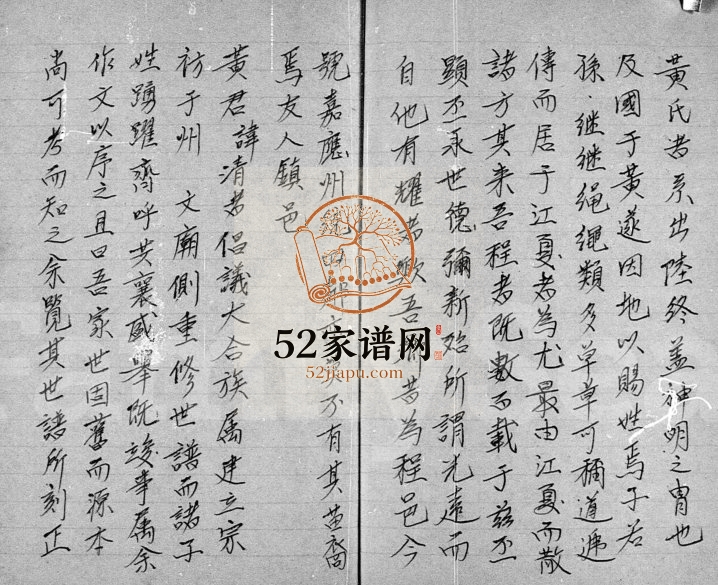 黃氏者系出陸終盖神明之冑也
及國于黃遂因地以賜姓焉子若
孫继继绳绳類多草草可稱道逓
傳而居于江夏者為尤最由江夏而散
諸方其来吾程者既數百載于兹丕
顕丕承世德彌新殆所謂光遠而
自他有耀者歟吾 昔為程邑今
號嘉應州 不有其苗裔
焉友人鎮邑
黃君 諱清者倡議大合族属建立宗
祊于州 文廟側重修世譜而諸子
姓踴躍齊呼共襄盛舉既竣事属余
作文以序之且曰吾家世因舊而源本
尚可考而知之余覽其世譜所刻正
52家谱网
52jiapu.com